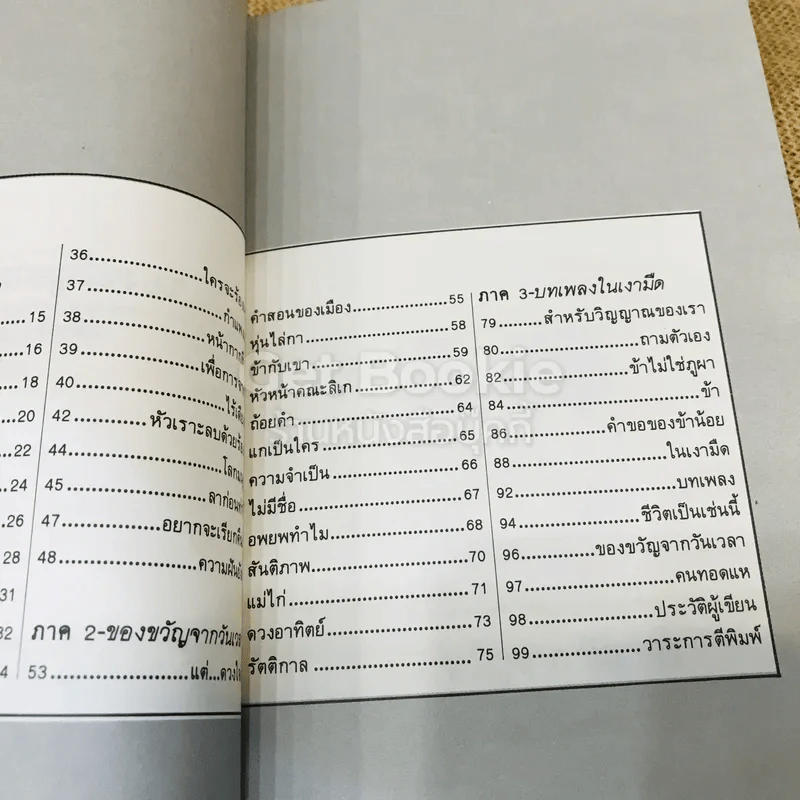 15
16
18
20
22
24
26
28
31
32
4
36....................ใครจะร้อง
37....................กำแพง
38....................หน้ากาก
39....................เพื่อการ
40....................
42....................หัวเราะลบด้วยร้อง
44....................
45....................ลาก่อน
47....................อยากจะเรียก
48....................ความฝัน
ภาค 2-ของขวัญจากวันเวลา
53....................แต่...ดวงใจ
คำสอนของเมือง....................55
หุ่นไล่กา....................58
ข้ากับเขา....................59
หัวหน้าคณะลิเก....................62
ถ้อยคำ....................64
แกเป็นใคร....................65
ความจำเป็น....................66
ไม่มีชื่อ....................67
อพยพทำไม....................68
สันติภาพ....................70
แม่ไก่....................71
ดวงอาทิตย์....................73
รัตติกาล....................75
ภาค 3-บทเพลงในเงามืด
79.........สำหรับวิญญาณของเรา
80....................ถามตัวเอง
82....................ข้าไม่ใช่ภูผา
84....................ข้า
86....................คำขอของข้าน้อย
88....................ในเงามืด
92....................บทเพลง
94....................ชีวิตเป็นเช่นนี้
96.............ของขวัญจากวันเวลา
97....................คนทอดแห
98....................ประวัติผู้เขียน
99....................วาระการตีพิมพ์
Get Bookie
ร้านหนังสือบุ๊คกี้